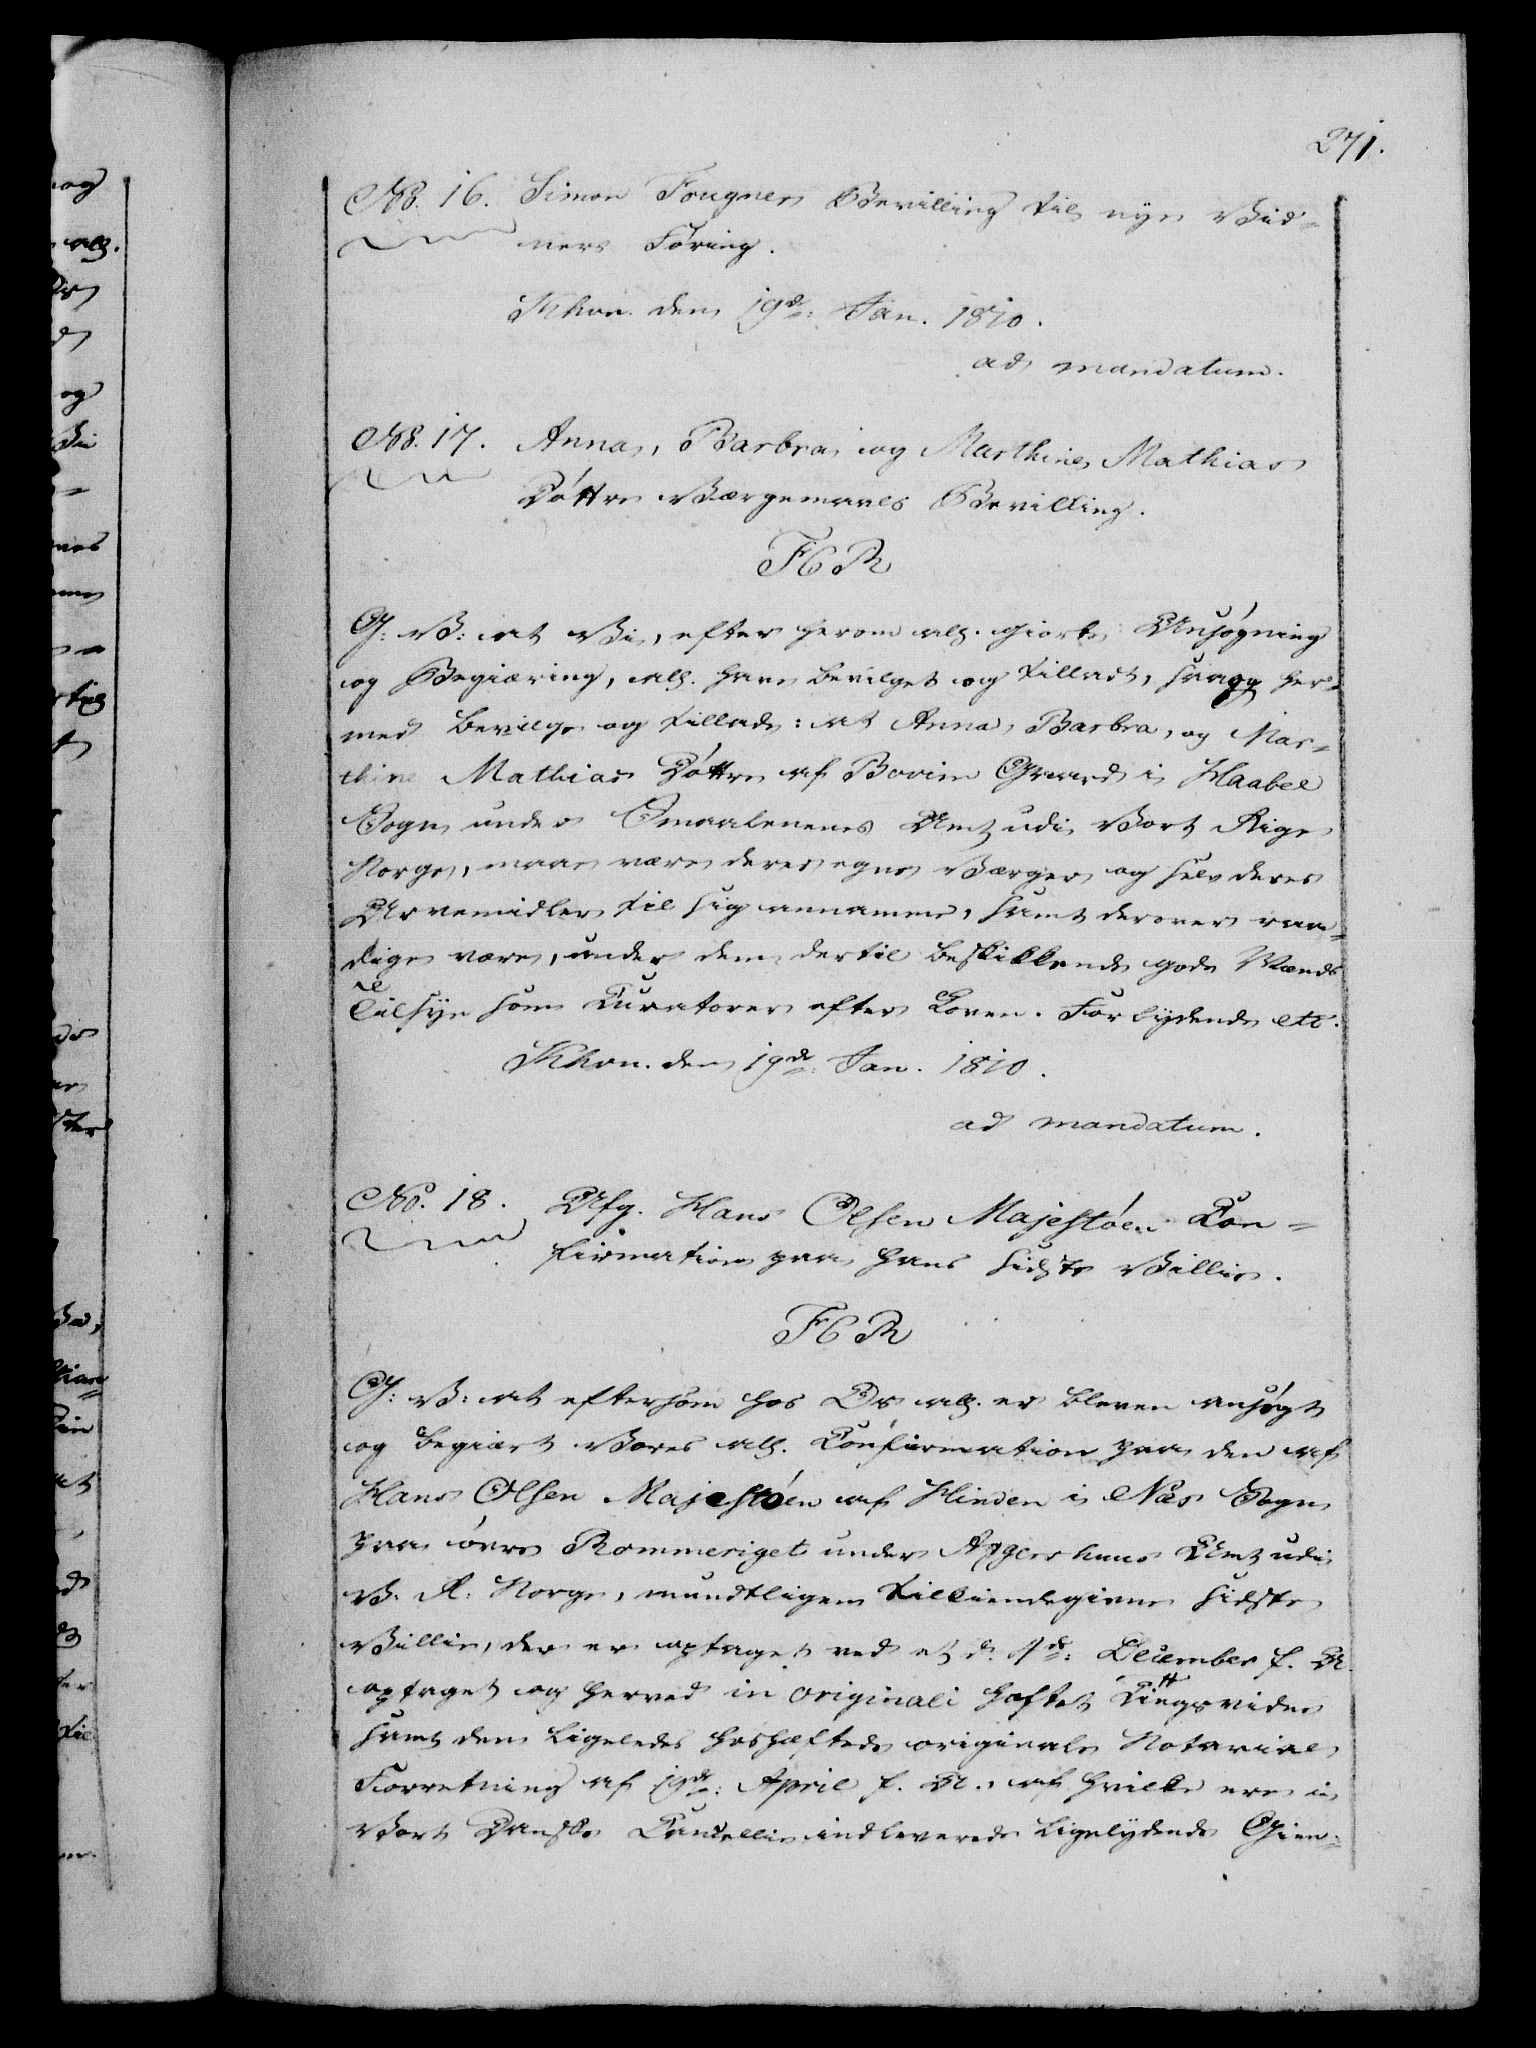 271.
No. 16. Simon Fougners Bevilling til nye Vid-
ners Føring.
Khvn. den 19de: Jan. 1810.
ad mandatum.
No. 17. Anna, Barbra og Marthine Mathias
Døttre Værgemaals Bevilling.
F6R
G: V: at Vi, efter herom all. giorte Ansøgning
og Begiæring, all. have bevilget og tilladt, saa og her-
med bevilge og tillade: at Anna, Barbra, og Mar-
thine Mathias Døttre af Bovim Gaard i Haabel
Sogn under Smaalenenes Amt udi Vort Rige
Norge, maae være deres egne Værger og selv deres
Arvemidler til sig annamme, samt derover raa-
dige være, under den dertil beskikkende gode Mænds
Tilsyn som Curatorer efter Loven. Forbydende etc.
Khvn. den 19de: Jan. 1810.
ad mandatum.
No. 18. Afg. Hans Olsen Majestøen Con-
firmation paa hans sidste Villie.
F6R
G: V: at eftersom hos Os all. er bleven ansøgt
og begiært Vores all. Confirmation paa den af
Hans Olsen Majestøen af Hinden i Næs Sogn
paa øvre Rommeriget under Aggershuus Amt udi
V. R. Norge, mundtligen tilkiendegivne sidste
Villie, der er optaget ved et d. 1de: December f. A.
optaget og herved in originali hæftet Tingsvidne
samt den ligeledes hoshæftede originale Notarial
Forretning af 19de: April f. A., af hvilke ere i
Vort Danske Cancellie indleverede ligelydende Gien-